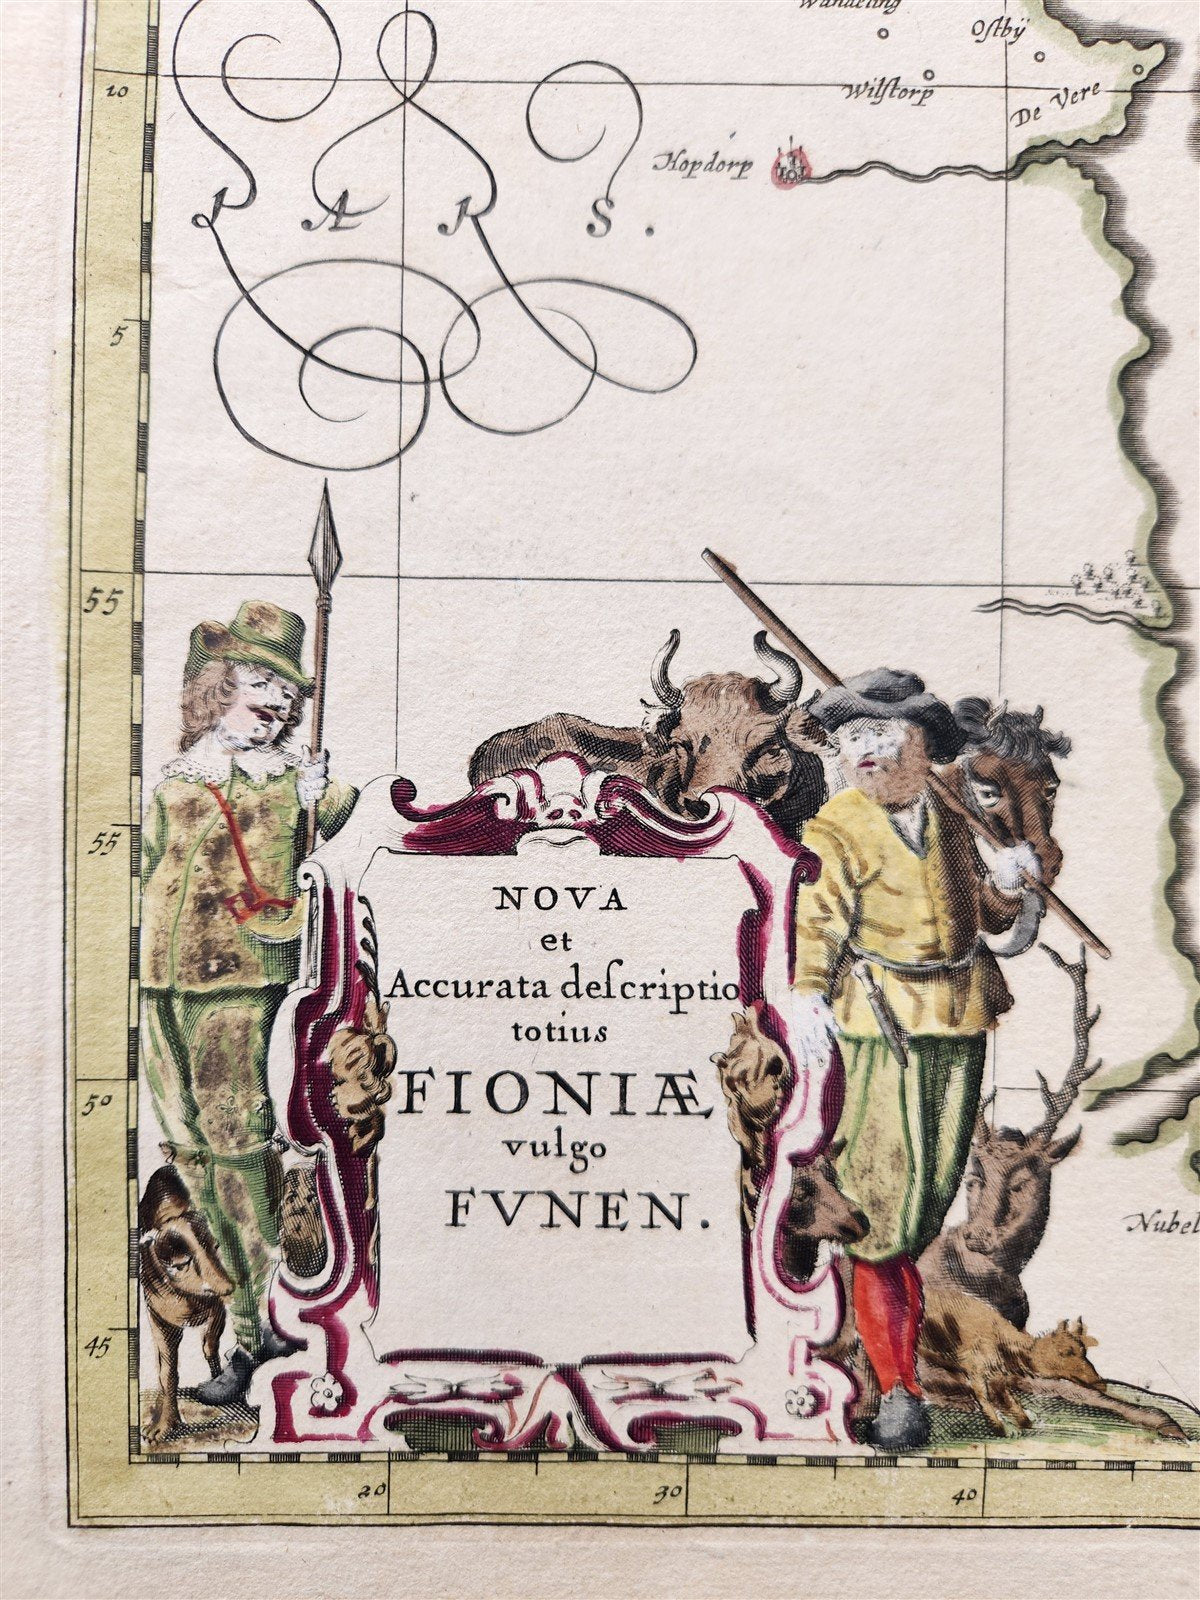 Wandeling
Ostbÿ
10
Wilstorp
De Vere
Hopdorp
PARS.
5
55
55
NOVA
et
Accurata deſcriptio
totius
FIONIÆ
vulgo
FVNEN.
50
Nubel
45
20
30
40